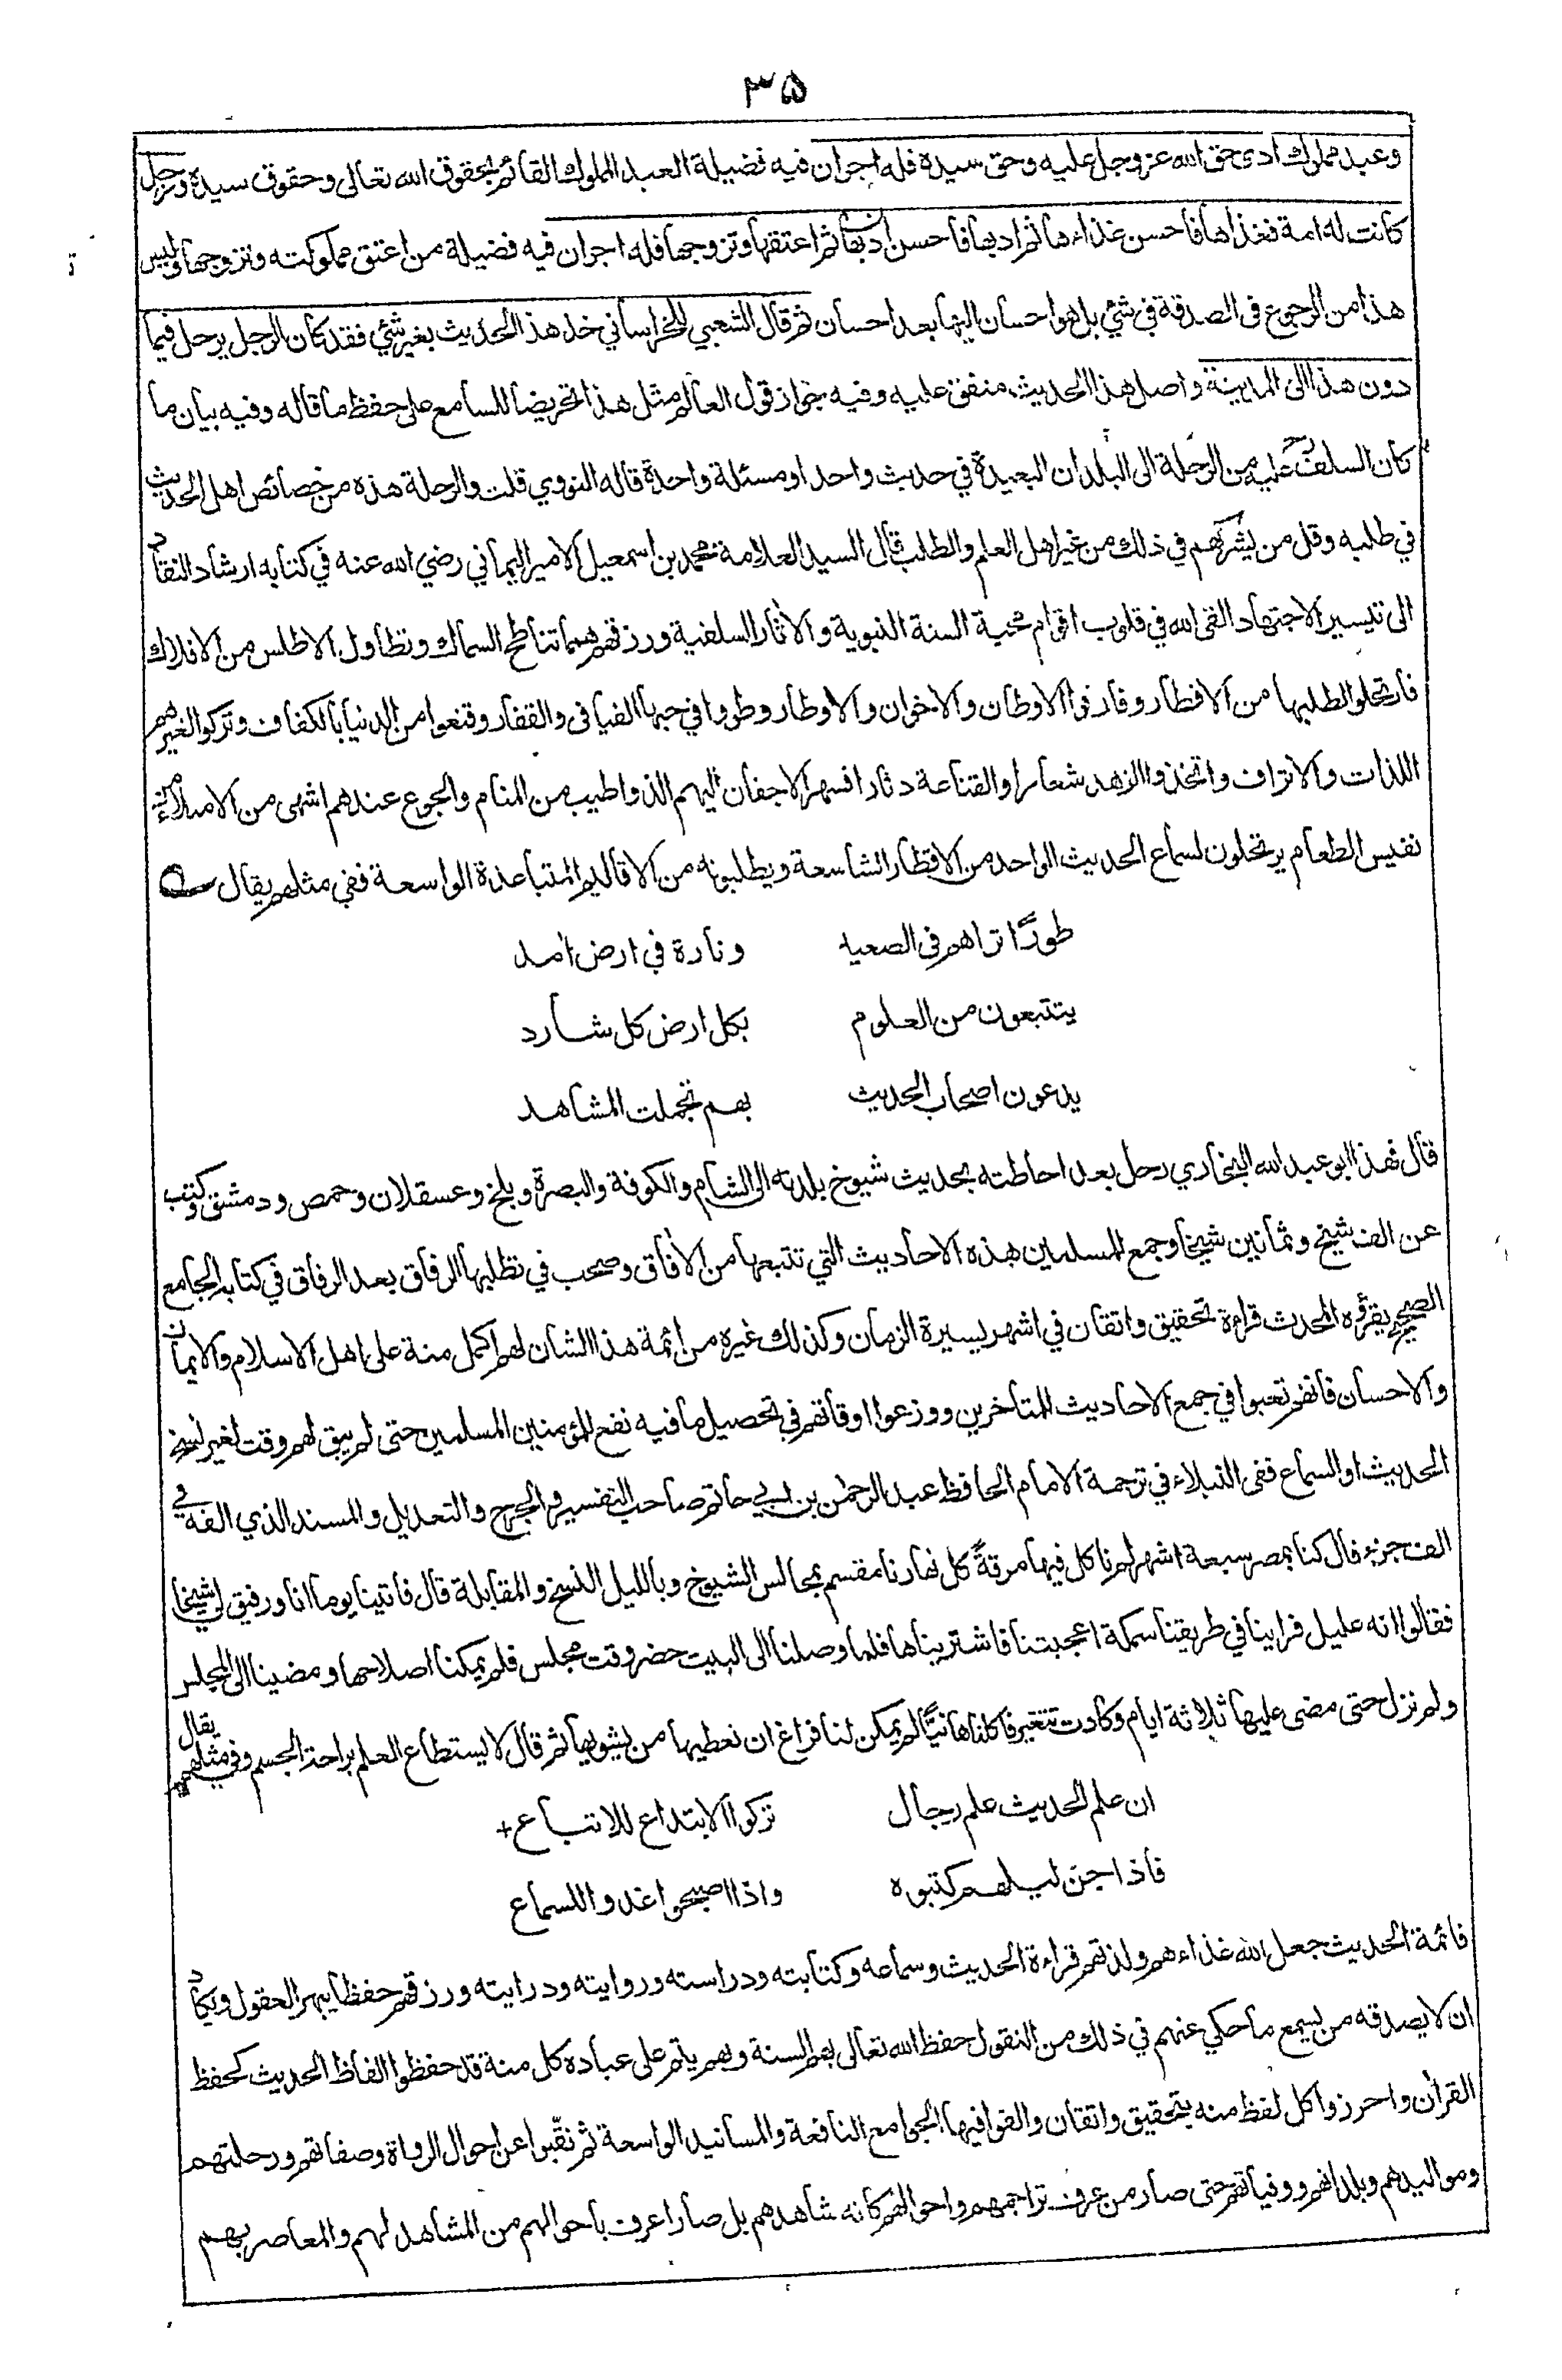 ٣٥
وعبد مملوك ادى حق الله عز وجل عليه وحق سيده فله اجران فيه فضيلة العبد المملوك القائم بحقوق الله تعالى وحقوق سيده ورجل
كانت له امة فغذاها فاحسن غذاءها ثم ادبها فاحسن ادبها ثم اعتقها وتزوجها فله اجران فيه فضيلة من اعتق مملوكته وتزوجها وليس
هذا من الرجوع فى الصدقة في شئ بل هو احسان اليها بعد احسان ثم قال الشعبي للخراساني خذ هذا الحديث بغير شئ فقد كان الرجل يرحل فيما
دون هذا الى المدينة واصل هذا الحديث متفق عليه وفيه جواز قول العالم مثل هذا تحريضا للسامع على حفظ ما قاله وفيه بيان ما
كان السلف رح عليه من الرحلة الى البلدان البعيدة في حديث واحد او مسئلة واحدة قاله النووي قلت والرحلة هذه من خصائص اهل الحديث
في طلبه وقل من يشركهم في ذلك من غير اهل العلم والطلب قال السيد العلامة محمد بن اسمعيل الامير اليماني رضي الله عنه في كتابه ارشاد النقاد
الى تيسير الاجتهاد القى الله في قلوب اقوام محبة السنة النبوية والاٰثار السلفية ورزقهم همما تناطح السماك وتطاول الاطلس من الافلاك
فارتحلوا لطلبها من الاقطار وفارقوا الاوطان والاخوان والاوطار وطووا في حبها الفيافى والقفار وقنعوا من الدنيا بالكفاف وتركوا لغيرهم
اللذات والاتراف واتخذوا الزهد شعارا والقناعة دثارا فسهر الاجفان اليهم الذ واطيب من المنام والجوع عندهم اشهى من الامتلاء من
نفيس الطعام يرتحلون لسماع الحديث الواحد من الاقطار الشاسعة ويطلبونه من الاقاليم المتباعدة الواسعة ففي مثلهم يقال
طورًا تراهم فى الصعيد وتارة في ارض اٰمد
يتتبعون من العلوم بكل ارض كل شارد
يدعون اصحاب الحديث بهم تجملت المشاهد
قال فهذا ابو عبد الله البخاري رحل بعد احاطته بحديث شيوخ بلدته الى الشام والكوفة والبصرة وبلخ وعسقلان وحمص ودمشق وكتب
عن الف شيخ وثمانين شيخا وجمع للمسلمين هذه الاحاديث التي تتبعها من الاٰفاق وصحب في تطلبها الرفاق بعد الرفاق في كتابه الجامع
الصحيح يقرؤه المحدث قراءة تحقيق واتقان في اشهر يسيرة الزمان وكذلك غيره من ائمة هذا الشان لهم اكمل منة على اهل الاسلام والايمان
والاحسان فانهم تعبوا في جمع الاحاديث للمتأخرين ووزعوا اوقاتهم في تحصيل ما فيه نفع للمؤمنين المسلمين حتى لم يبق لهم وقت لغير نسخ
الحديث او السماع ففى النبلاء في ترجمة الامام الحافظ عبد الرحمٰن بن ابي حاتم صاحب التفسير والجرح والتعديل والمسند الذي الفه في
الف جزء قال كنا بمصر سبعة اشهر لم نأكل فيها مرقةً كل نهارنا مقسم بمجالس الشيوخ وبالليل النسخ والمقابلة قال فاتينا يوما انا ورفيق لي شيخا
فقالوا انه عليل فراينا في طريقنا سمكة اعجبتنا فاشتريناها فلما وصلنا الى البيت حضر وقت مجلس فلم يمكنا اصلاحها ومضينا الى المجلس
ولم نزل حتى مضى عليها ثلاثة ايام وكادت تتغير فاكلناها نيًّا لم يكن لنا فراغ ان نعطيها من يشويها ثم قال لا يستطاع العلم براحة الجسم وفي مثلهم يقال
ان علم الحديث علم رجال تركوا الابتداع للاتباع +
فاذا جن ليلهم كتبوه واذا اصبحوا غدوا للسماع
فائمة الحديث جعل الله غذاءهم ولذتهم قراءة الحديث وسماعه وكتابته ودراسته وروايته ودرايته ورزقهم حفظا يبهر العقول ويكاد
ان لا يصدقه من يسمع ما حكي عنهم في ذلك من النقول حفظ الله تعالى بهم السنة وبهم يتم على عباده كل منة قد حفظوا الفاظ الحديث كحفظ
القراٰن واحرزوا كل لفظ منه بتحقيق واتقان والفوا فيها الجوامع النافعة والمسانيد الواسعة ثم نقّبوا عن احوال الرواة وصفاتهم ورحلتهم
ومواليدهم وبلدانهم ووفياتهم حتى صار من عرف تراجمهم واحوالهم كانه شاهدهم بل صار اعرف باحوالهم من المشاهد لهم والمعاصر بهم